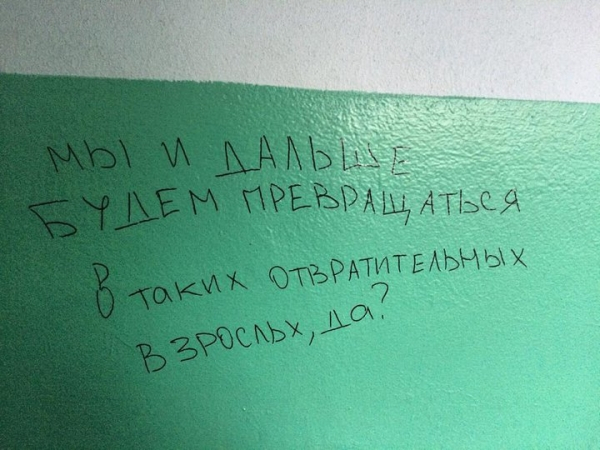 МЫ И ДАЛЬШЕ
БУДЕМ ПРЕВРАЩАТЬСЯ
В ТАКИХ ОТВРАТИТЕЛЬНЫХ
ВЗРОСЛЫХ, ДА?